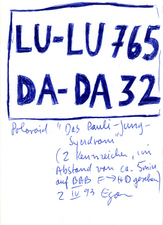 LU-LU 765
DA-DA 32
Polaroid "Das Pauli-Jung-
Syndrom"
(2 Kennzeichen, im
Abstand von ca. 5 min
auf BAB F → HD gesehen
2 IV 93